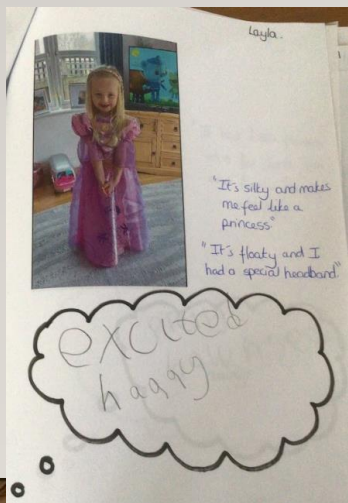 Layla..
"It's silky and makes
me feel like a
princess"
"It's floaty and I
had a special headband."
excited
haqqy